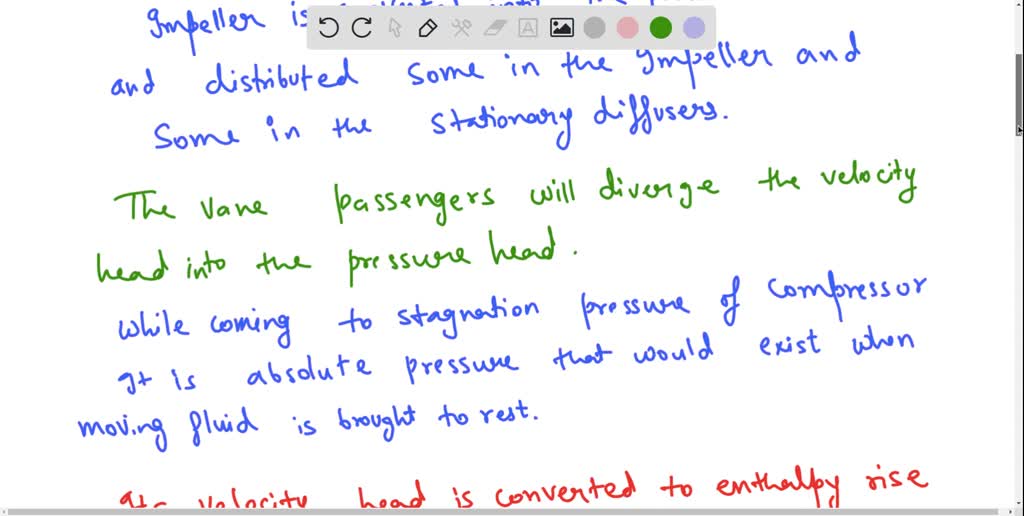 Impeller is
and distributed some in the Impeller and
Some in the stationary diffusers.
The vane passengers will diverge the velocity
head into the pressure head.
while coming to stagnation pressure of compressor
It is absolute pressure that would exist when
moving fluid is brought to rest.
Its velocity head is converted to enthalpy rise